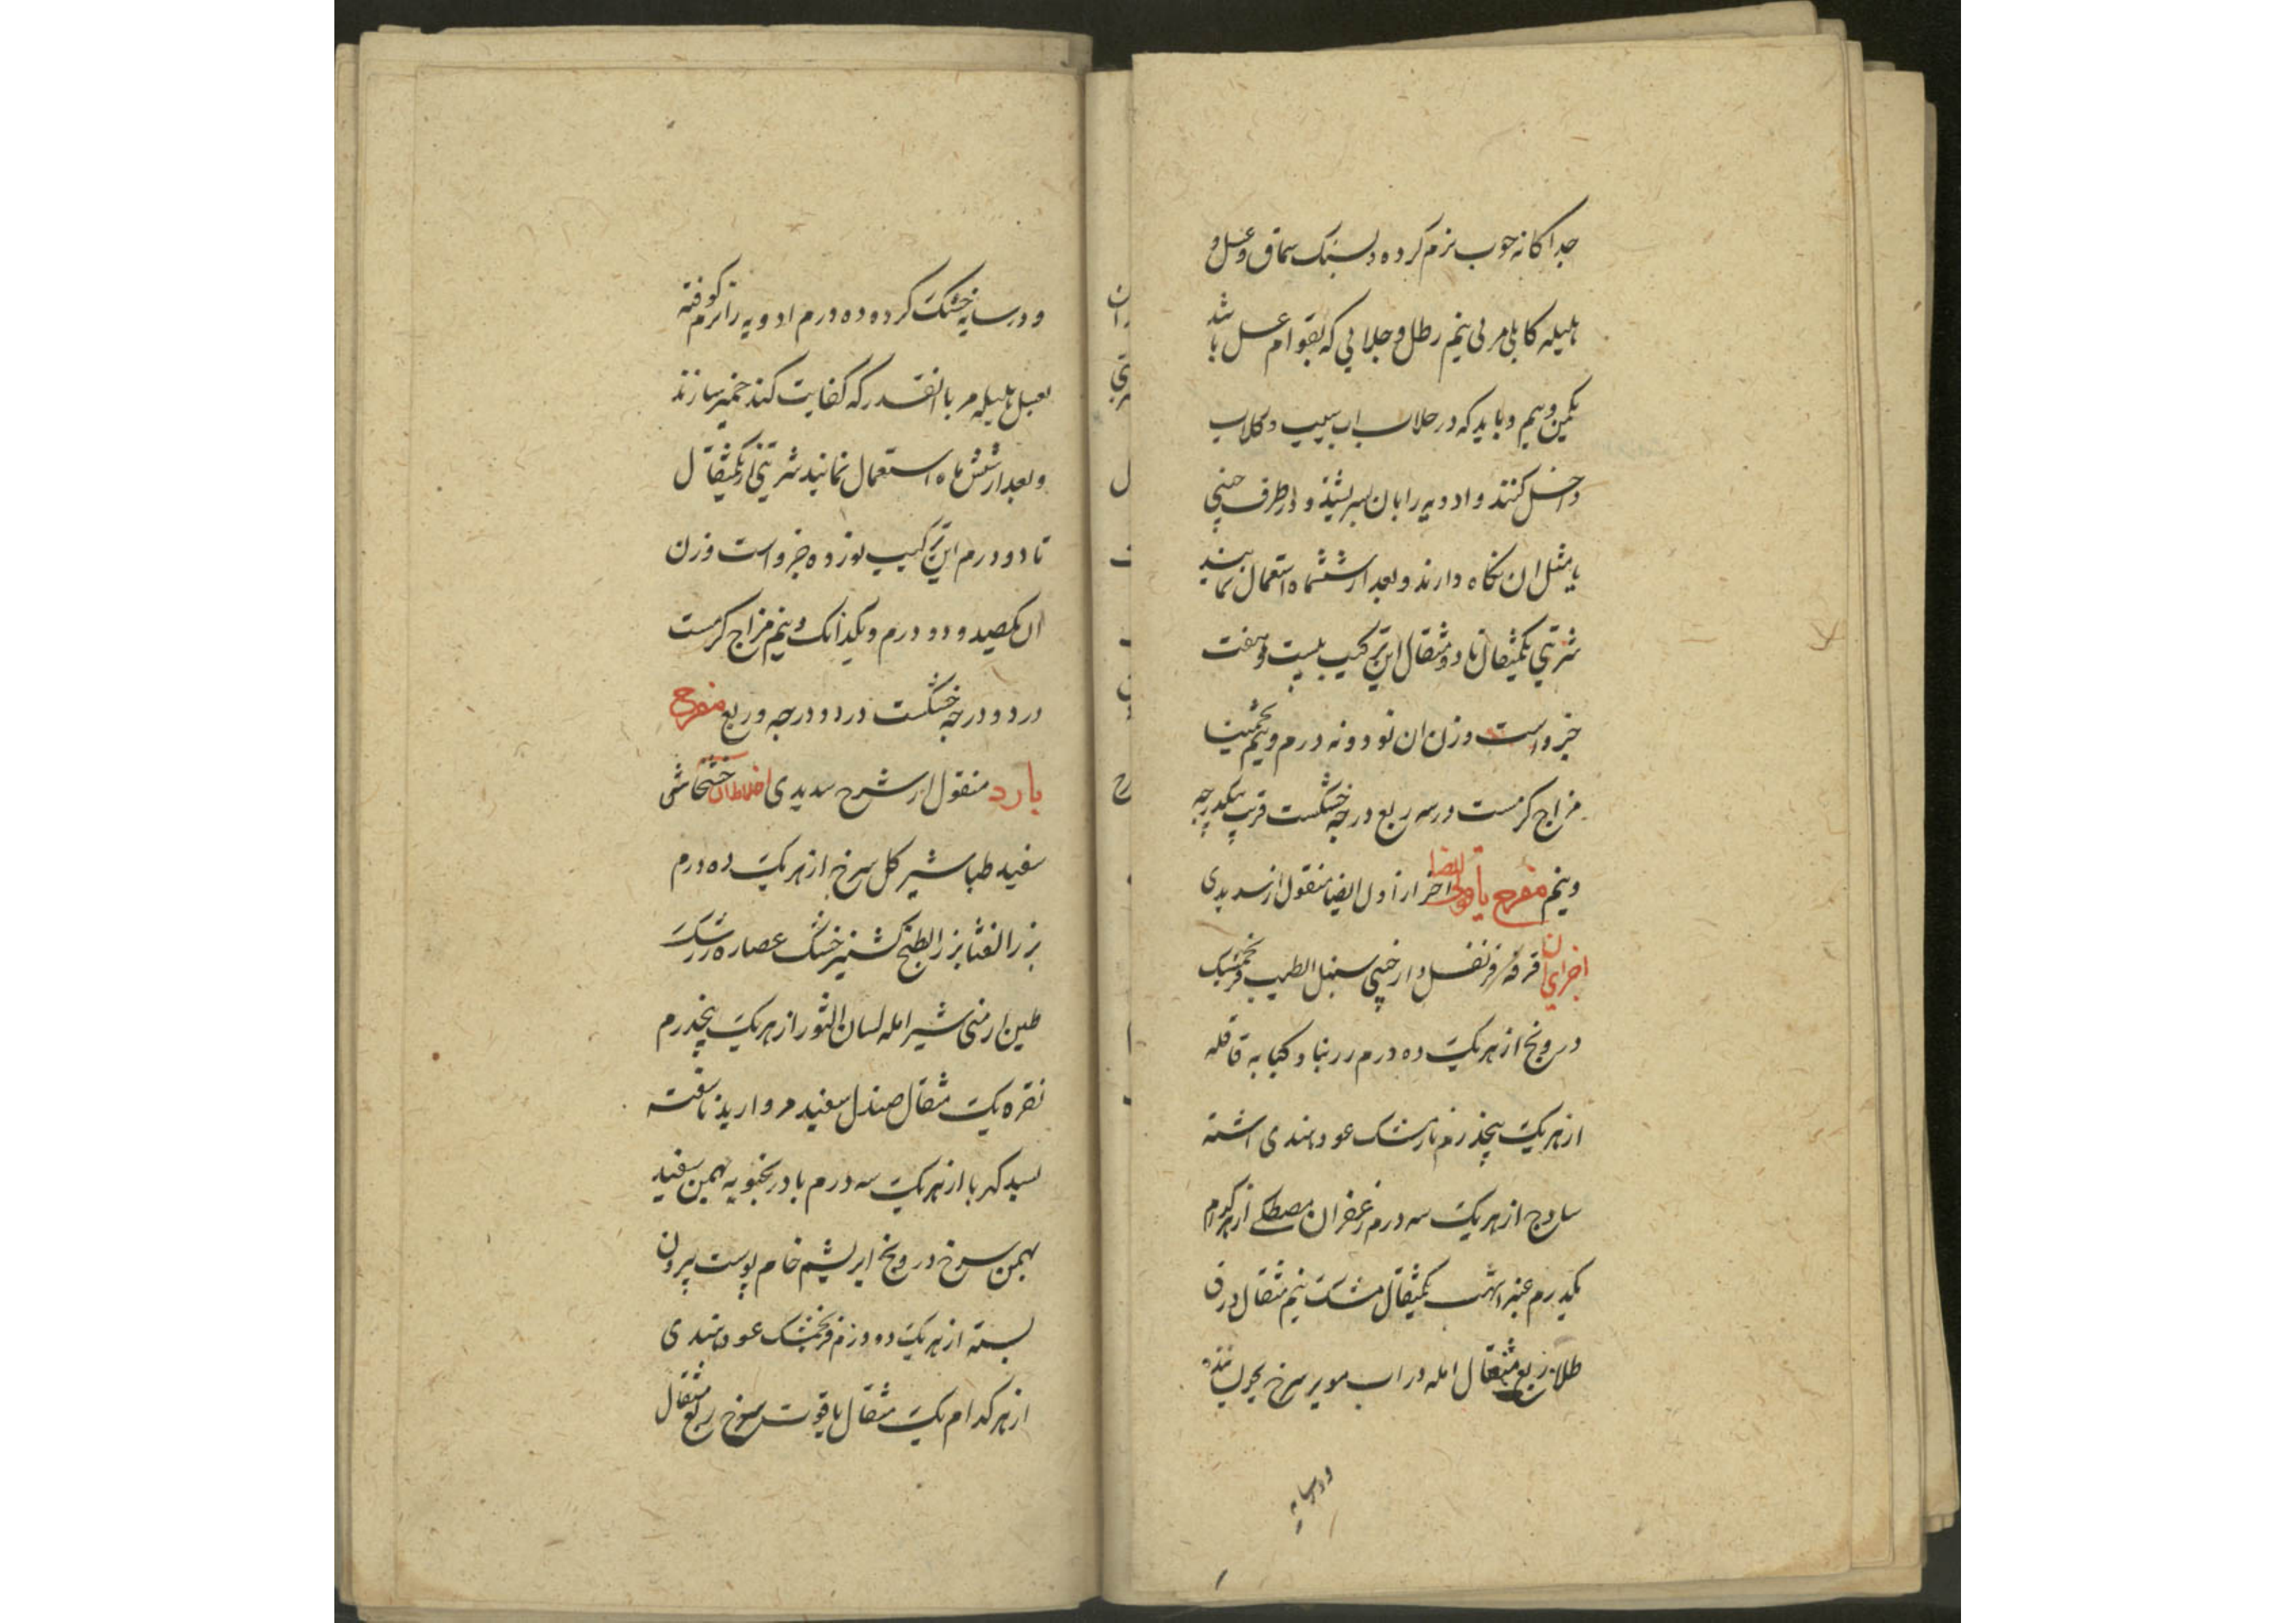 جدا کانه خوب نرم کرده در سنک سماق و عسل و
هلیله کابلی مربی نیم رطل و جلابی که بقوام عسل باشد
یکمن و نیم و باید که در جلاب اب سیب و کلاب
داخل کنند و ادویه را بان بسریشند و در ظرف چینی
یا مثل ان نکاه دارند و بعد از ششماه استعمال نمایند
شربتی یکمثقال تا دو مثقال این ترکیب بیست و هفت
جزو است وزن ان نود و نه درم و نیم تخمینا
مزاج کرمست در سه ربع درجه خشکست قریب بیکدرجه
و نیم مفرح یاقوتی ایضا اخر از اول ایضا منقول از سدیدی
اجزای ان قرفه قرنفل دارچینی سنبل الطیب فرنجمشک
درونج از هر یک ده درم زرنباد کبابه قاقله
از هر یک پنجدرم نارمشک عود هندی اشنه
سادج از هر یک سه درم زعفران مصطکی از هر کدام
یکدرم عنبر اشهب یکمثقال مشک نیم مثقال ورق
طلا ربع مثقال امله در اب مویز سرخ
و در سایه
و در سایه خشک کرده ده درم ادویه را نرم کوفته
بعسل هلیله مربا انقدر که کفایت کند خمیر سازند
و بعد از شش ماه استعمال نمایند شربتی از یکمثقال
تا دو درم این ترکیب نوزده جزو است وزن
ان یکصد و دو درم و یکدانک و نیم مزاج کرمست
در دو درجه خشکست در دو درجه و ربع مفرح
بارد منقول از شرح سدیدی اخلاط ان خشخاش
سفید طباشیر کل سرخ از هر یک ده درم
بزر القثا بزر البطیخ کشنیز خشک عصاره زرشک
طین ارمنی شیر امله لسان الثور از هر یک پنجدرم
نقره یک مثقال صندل سفید مروارید ناسفته
بسد کهربا از هر یک سه درم بادرنجبویه بهمن سفید
بهمن سرخ درونج ابریشم خام پوست بیرون
پسته از هر یک دو درم فرنجمشک عود هندی
از هر کدام یک مثقال یاقوت سرخ ربع مثقال